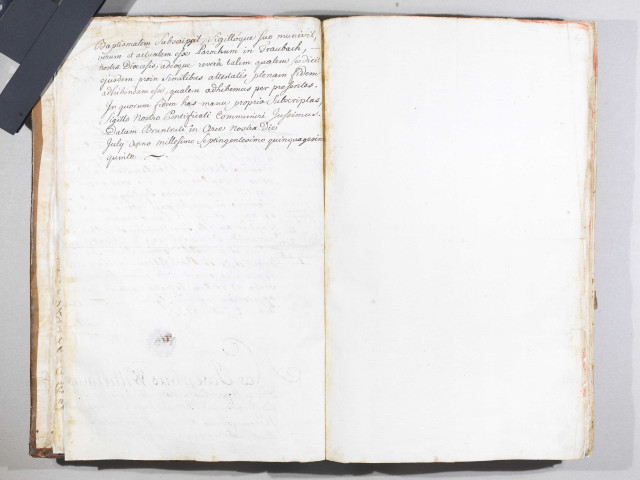 Baptismalem Subscripsit, Sigilloque suo munivit,
verum et actualem esse Parochum in Traubach,
nostræ Diœcesis, adeoque revera talem qualem se dicit
ejusdem proin similibus attestatis plenam fidem
adhibendam esse, qualem adhibemus per præsentes.
In quorum fidem has manu propria Subscriptas
Sigillo Nostro Pontificali Communiri Jussimus.
Datum Bruntruti in Arce nostra Die
July Anno millesimo Septingentesimo quinquagesimo
quinto.